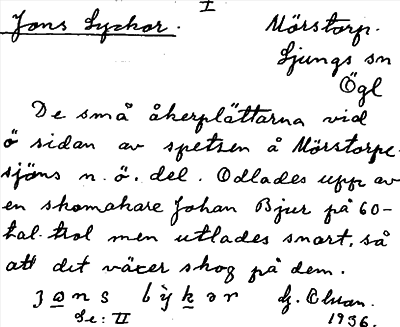 I
Jons Lyckor. Mörstorp.
Ljungs sn
Ögl
De små åkerplättarna vid
ö sidan av spetsen å Mörstorpe-
sjöns n. ö. del. Odlades upp av
en skomakare Johan Bjur på 60-
tal. trol men utlades snart, så
att det växer skog på dem.
jons lykər
Se: II 1936.